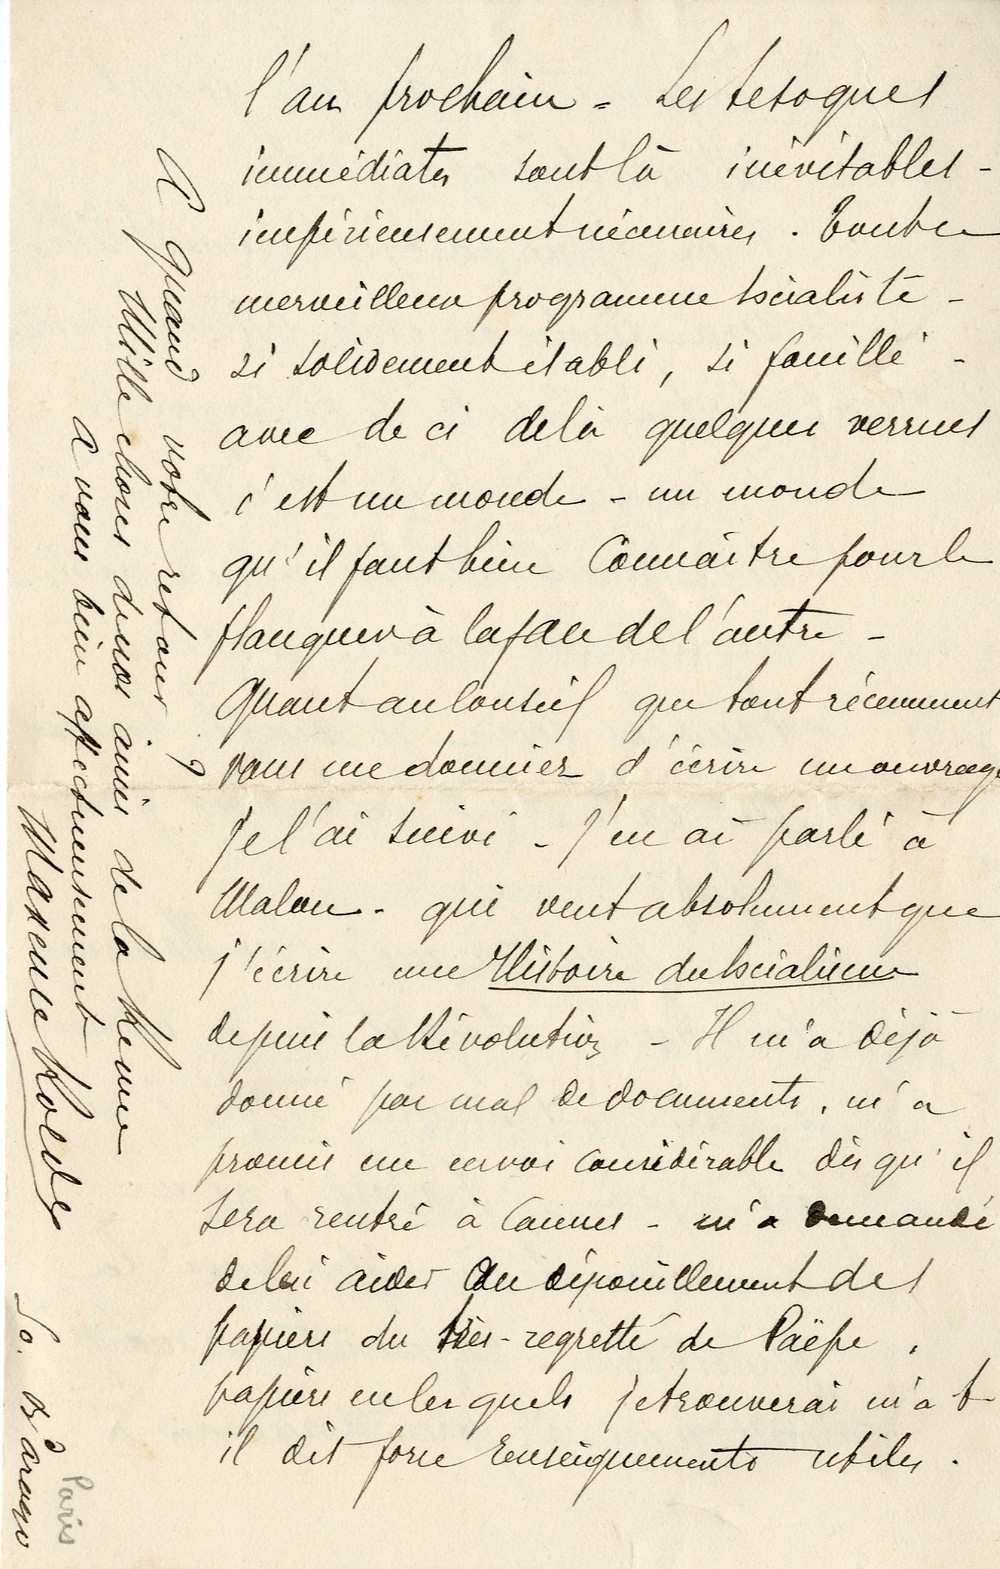 l'an prochain = Les besognes
immédiates sont là inévitables -
impérieusement nécessaires. Tout ce
merveilleux programme socialiste -
si solidement établi, si fouillé -
avec de ci de là quelques verrues
c'est un monde - un monde
qu'il faut bien connaître pour le
flanquer à la face de l'autre -
Quant au conseil que tout récemment
vous me donniez d'écrire un ouvrage
je l'ai suivi - J'en ai parlé à
Malon - qui veut absolument que
j'écrive une Histoire du Socialisme
depuis la Révolution - Il m'a déjà
donné pas mal de documents, m'a
promis un envoi considérable dès qu'il
sera rentré à Cannes - m'a demandé
de lui aider au dépouillement des
papiers du très-regretté de Paëpe,
papiers en lesquels je trouverai m'a t
il dit force enseignements utiles.
A quand votre retour ?
Mille choses de nos amis de la Revue
à vous bien affectueusement
Maxence Roldes
Bd Arago
Paris